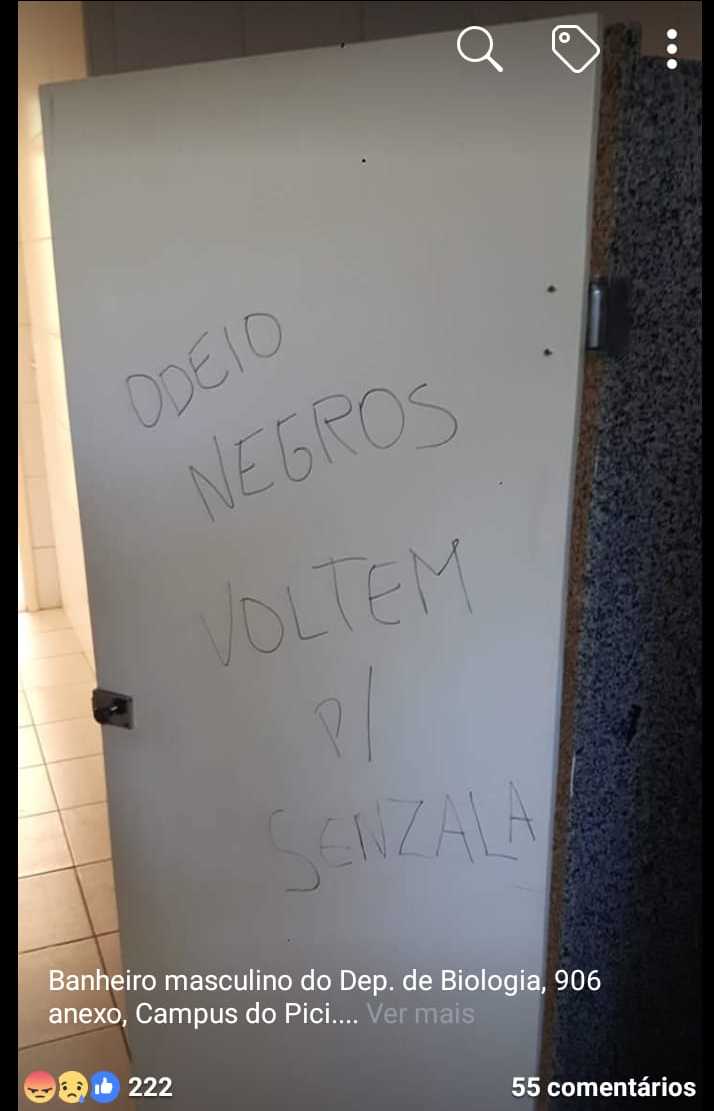 ODEIO
NEGROS
VOLTEM
P/
SENZALA
Banheiro masculino do Dep. de Biologia, 906
anexo, Campus do Pici.... Ver mais
222
55 comentários